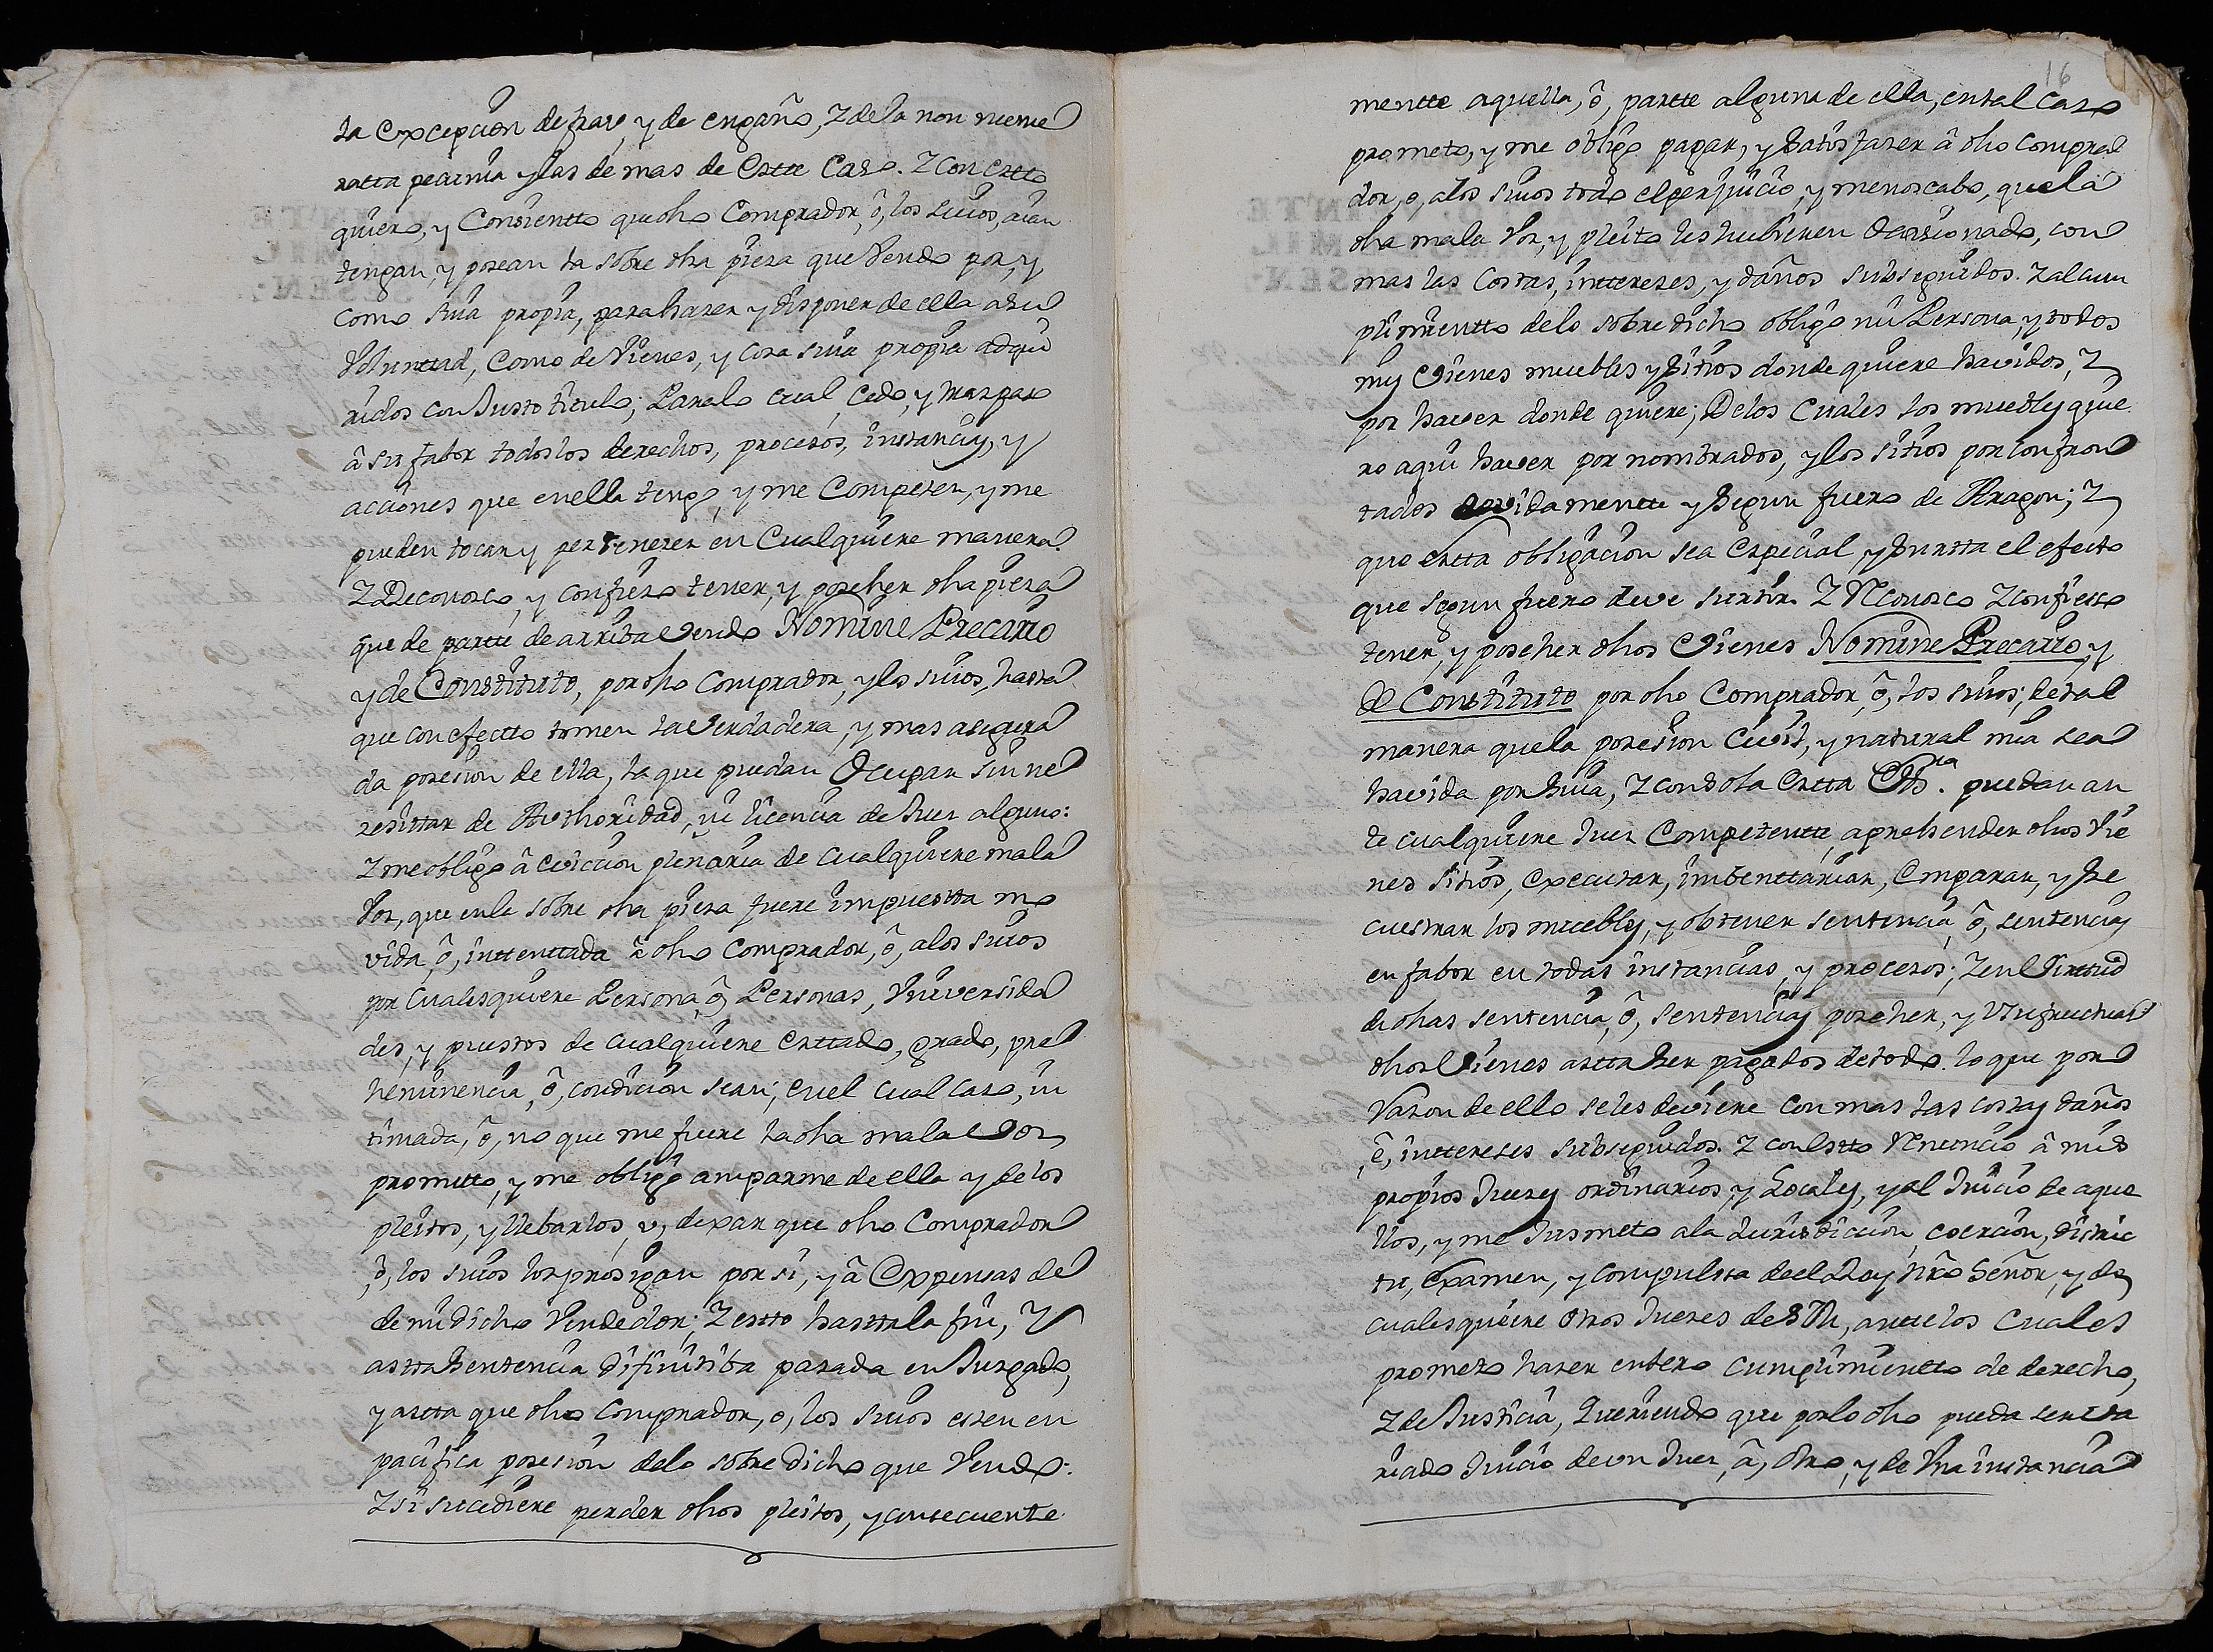 la Excepcion de frau, y de engaño, Z dela non nume
ratta pecunia y las de mas de Estte Caso. Z con Estto
quiero, y Consientto que dho Comprador, ô, los suios, aian
tengan, y posean la sobre dha pieza que Vendo por, y
como suia propia, para hazer y disponer de ella a su
Voluntad, Como de Vienes, y cosa suia propia adqui
ridos con Justo titulo; Paralo cual, Cedo, y traspaso
â su fabor todos los derechos, procesos, instancias, y
acciones que en ella tengo, y me Competen, y me
pueden tocar y pertenezer en Cualquiere manera.
Z Reconosco, y confieso tener, y poseher dha pieza
que de partte de arriba Vendo Nomine Precario
y de Constituto, por dho Comprador, y los suios, hasta
que con efectto tomen la Verdadera, y mas asegura
da posesion de ella, la que puedan Ocupar sin ne
zesittar de Authoridad, ni licencia de Juez alguno:
Z me obligo â eviccion plenaria de cualquiere mala
Voz, que en la sobre dha pieza fuere impuestta mo
vida, ô, inttenttada â dho Comprador, ô, alos suios
por Cualesquiere Persona, ô, Personas, Universida
des, y puestos de cualquiere Esttado, grado, pre
heminencia, ô, condicion sean; en el cual caso, in
timada, ô, no que me fuere la dha mala Voz
promitto, y me obligo amparme de ella y de los
pleitos, y llebarlos, v, dexar que dho Comprador
, ô, los suios los prosigan por si, y â Expensas de
de mi dicho Vendedor; Z estto hasttala fin, Y
astta Sentencia difinitiba pasada en Juzgado,
y astta que dho Comprador, o, los suios esten en
pacifica posesion delo sobre dicho que Vendo:
Z si sucediere perder dhos pleitos, y consecuente
16
mentte aquella, ô, partte alguna de ella, en tal Caso
prometo, y me obligo pagar, y Satisfazer â dho Compra
dor, o, alos suios todo el perjuicio, y menoscabo, que la
dha mala Voz, y pleito les hubieren Ocasionado, con
mas las Costas, inttereses, y daños subseguidos. Z al cum
plimientto delo sobre dicho obligo mi Persona, y todos
mis Vienes muebles y Sitios donde quiere havidos, Z
por haver donde quiere; Delos Cuales los muebles quie
ro aqui haver por nombrados, y los sitios por confron
tados devidamentte y Segun fuero de Aragon; Z
que estta obligacion sea Especial, y Surtta el efecto
que segun fuero deve surtir. Z Reconosco Z confiesso
tener, y poseher dhos Vienes Nomine Precario, y
de Constituto por dho Comprador, ô, los suios; de tal
manera que la posesion Civil, y natural mia sea
havida por Suia, Z con sola Estta Essra. puedan an
te cualquiere Juez Competentte, aprehender dhos Vie
nes Sitios, Executar, imbenttariar, Emparar, y Se
cuestrar los muebles, y obtener sentencia, ô, sentencias
en fabor en todas instancias, y procesos; Z en Virtud
de dhas sentencia, ô, sentencias poseher, y Usufructuar
dhos Vienes astta Ser pagados de todo lo que por
Razon de ello se les deviere con mas las costas daños
, ê, inttereses subseguidos. Z con Estto Renuncio â mis
propios Juezes ordinarios, y Locales, y al Juicio de aque
llos, y me Jusmeto ala Jurisdiccion, coercion, distric
tu, Examen, y compulssa de el Rey nro Señor, y de
cualesquiere otros Juezes de SM, antte los Cuales
prometo hazer entero cumplimientto de derecho,
Z de Justicia, Queriendo que por lo dho pueda ser va
riado Juicio de vn Juez, â, otro, y de Una instancia